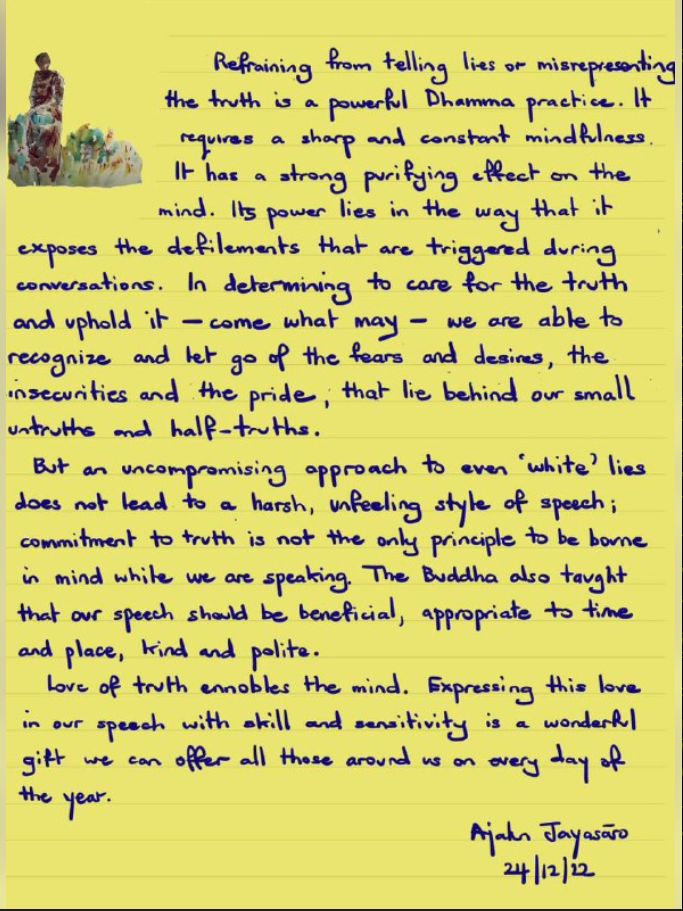 Refraining from telling lies or misrepresenting
the truth is a powerful Dhamma practice. It
requires a sharp and constant mindfulness.
It has a strong purifying effect on the
mind. Its power lies in the way that it
exposes the defilements that are triggered during
conversations. In determining to care for the truth
and uphold it – come what may – we are able to
recognize and let go of the fears and desires, the
insecurities and the pride, that lie behind our small
untruths and half-truths.
But an uncompromising approach to even 'white' lies
does not lead to a harsh, unfeeling style of speech;
commitment to truth is not the only principle to be borne
in mind while we are speaking. The Buddha also taught
that our speech should be beneficial, appropriate to time
and place, kind and polite.
Love of truth ennobles the mind. Expressing this love
in our speech with skill and sensitivity is a wonderful
gift we can offer all those around us on every day of
the year.
Ajahn Jayasāro
24/12/22